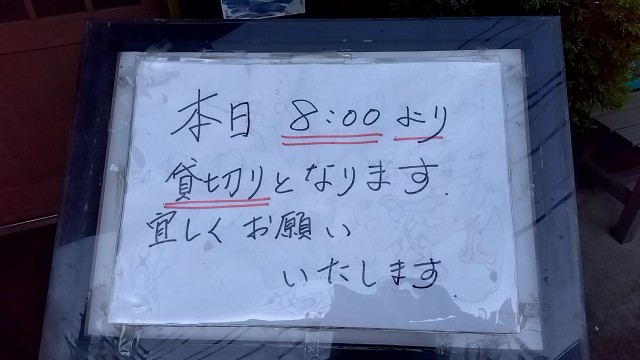 本日 8:00 より
貸切りとなります.
宜しくお願い
いたします.